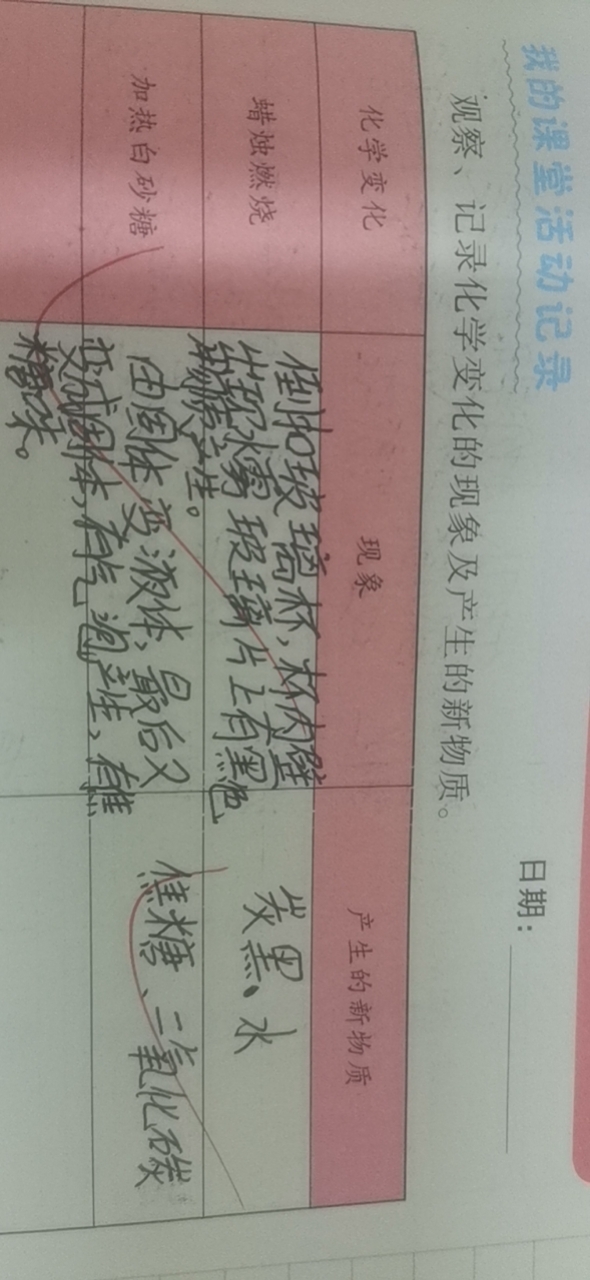 我的课堂活动记录
日期：
观察、记录化学变化的现象及产生的新物质。
化学变化 现象 产生的新物质
蜡烛燃烧
倒扣玻璃杯，杯内壁
出现水雾 玻璃片上有黑色
产生。
炭黑、水
加热白砂糖
由固体变液体，最后又
变成固体，有气泡产生，有焦
糖味。
焦糖、二氧化碳